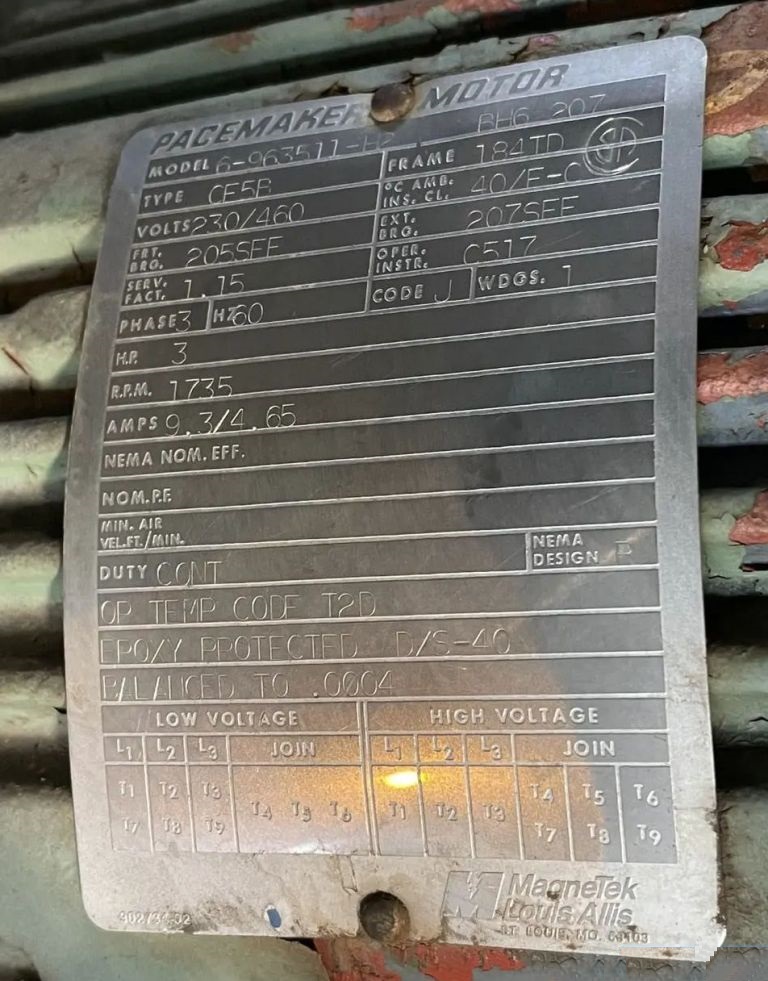 PACEMAKER MOTOR
MODEL 6-963511-H2 BH6 207
TYPE CESB FRAME 184TD
VOLTS 230/460 °C AMB. INS. CL. 40/F-C
FRT. BRG. 205SFF EXT. BRG. 207SFF
SERV. FACT. 1.15 OPER. INSTR. C517
PHASE 3 HZ 60 CODE J WDGS. 1
H.P. 3
R.P.M. 1735
AMPS 9.3/4.65
NEMA NOM. EFF.
NOM. P.F.
MIN. AIR VEL.FT./MIN.
DUTY CONT NEMA DESIGN B
OP TEMP CODE T2D
EPOXY PROTECTED D/S-40
BALANCED TO .0004
LOW VOLTAGE HIGH VOLTAGE
L1 L2 L3 JOIN L1 L2 L3 JOIN
T1 T2 T3 T4 T5 T6 T1 T2 T3 T4 T5 T6
T7 T8 T9 T7 T8 T9
MagneTek
Louis Allis
ST. LOUIS, MO. 63103